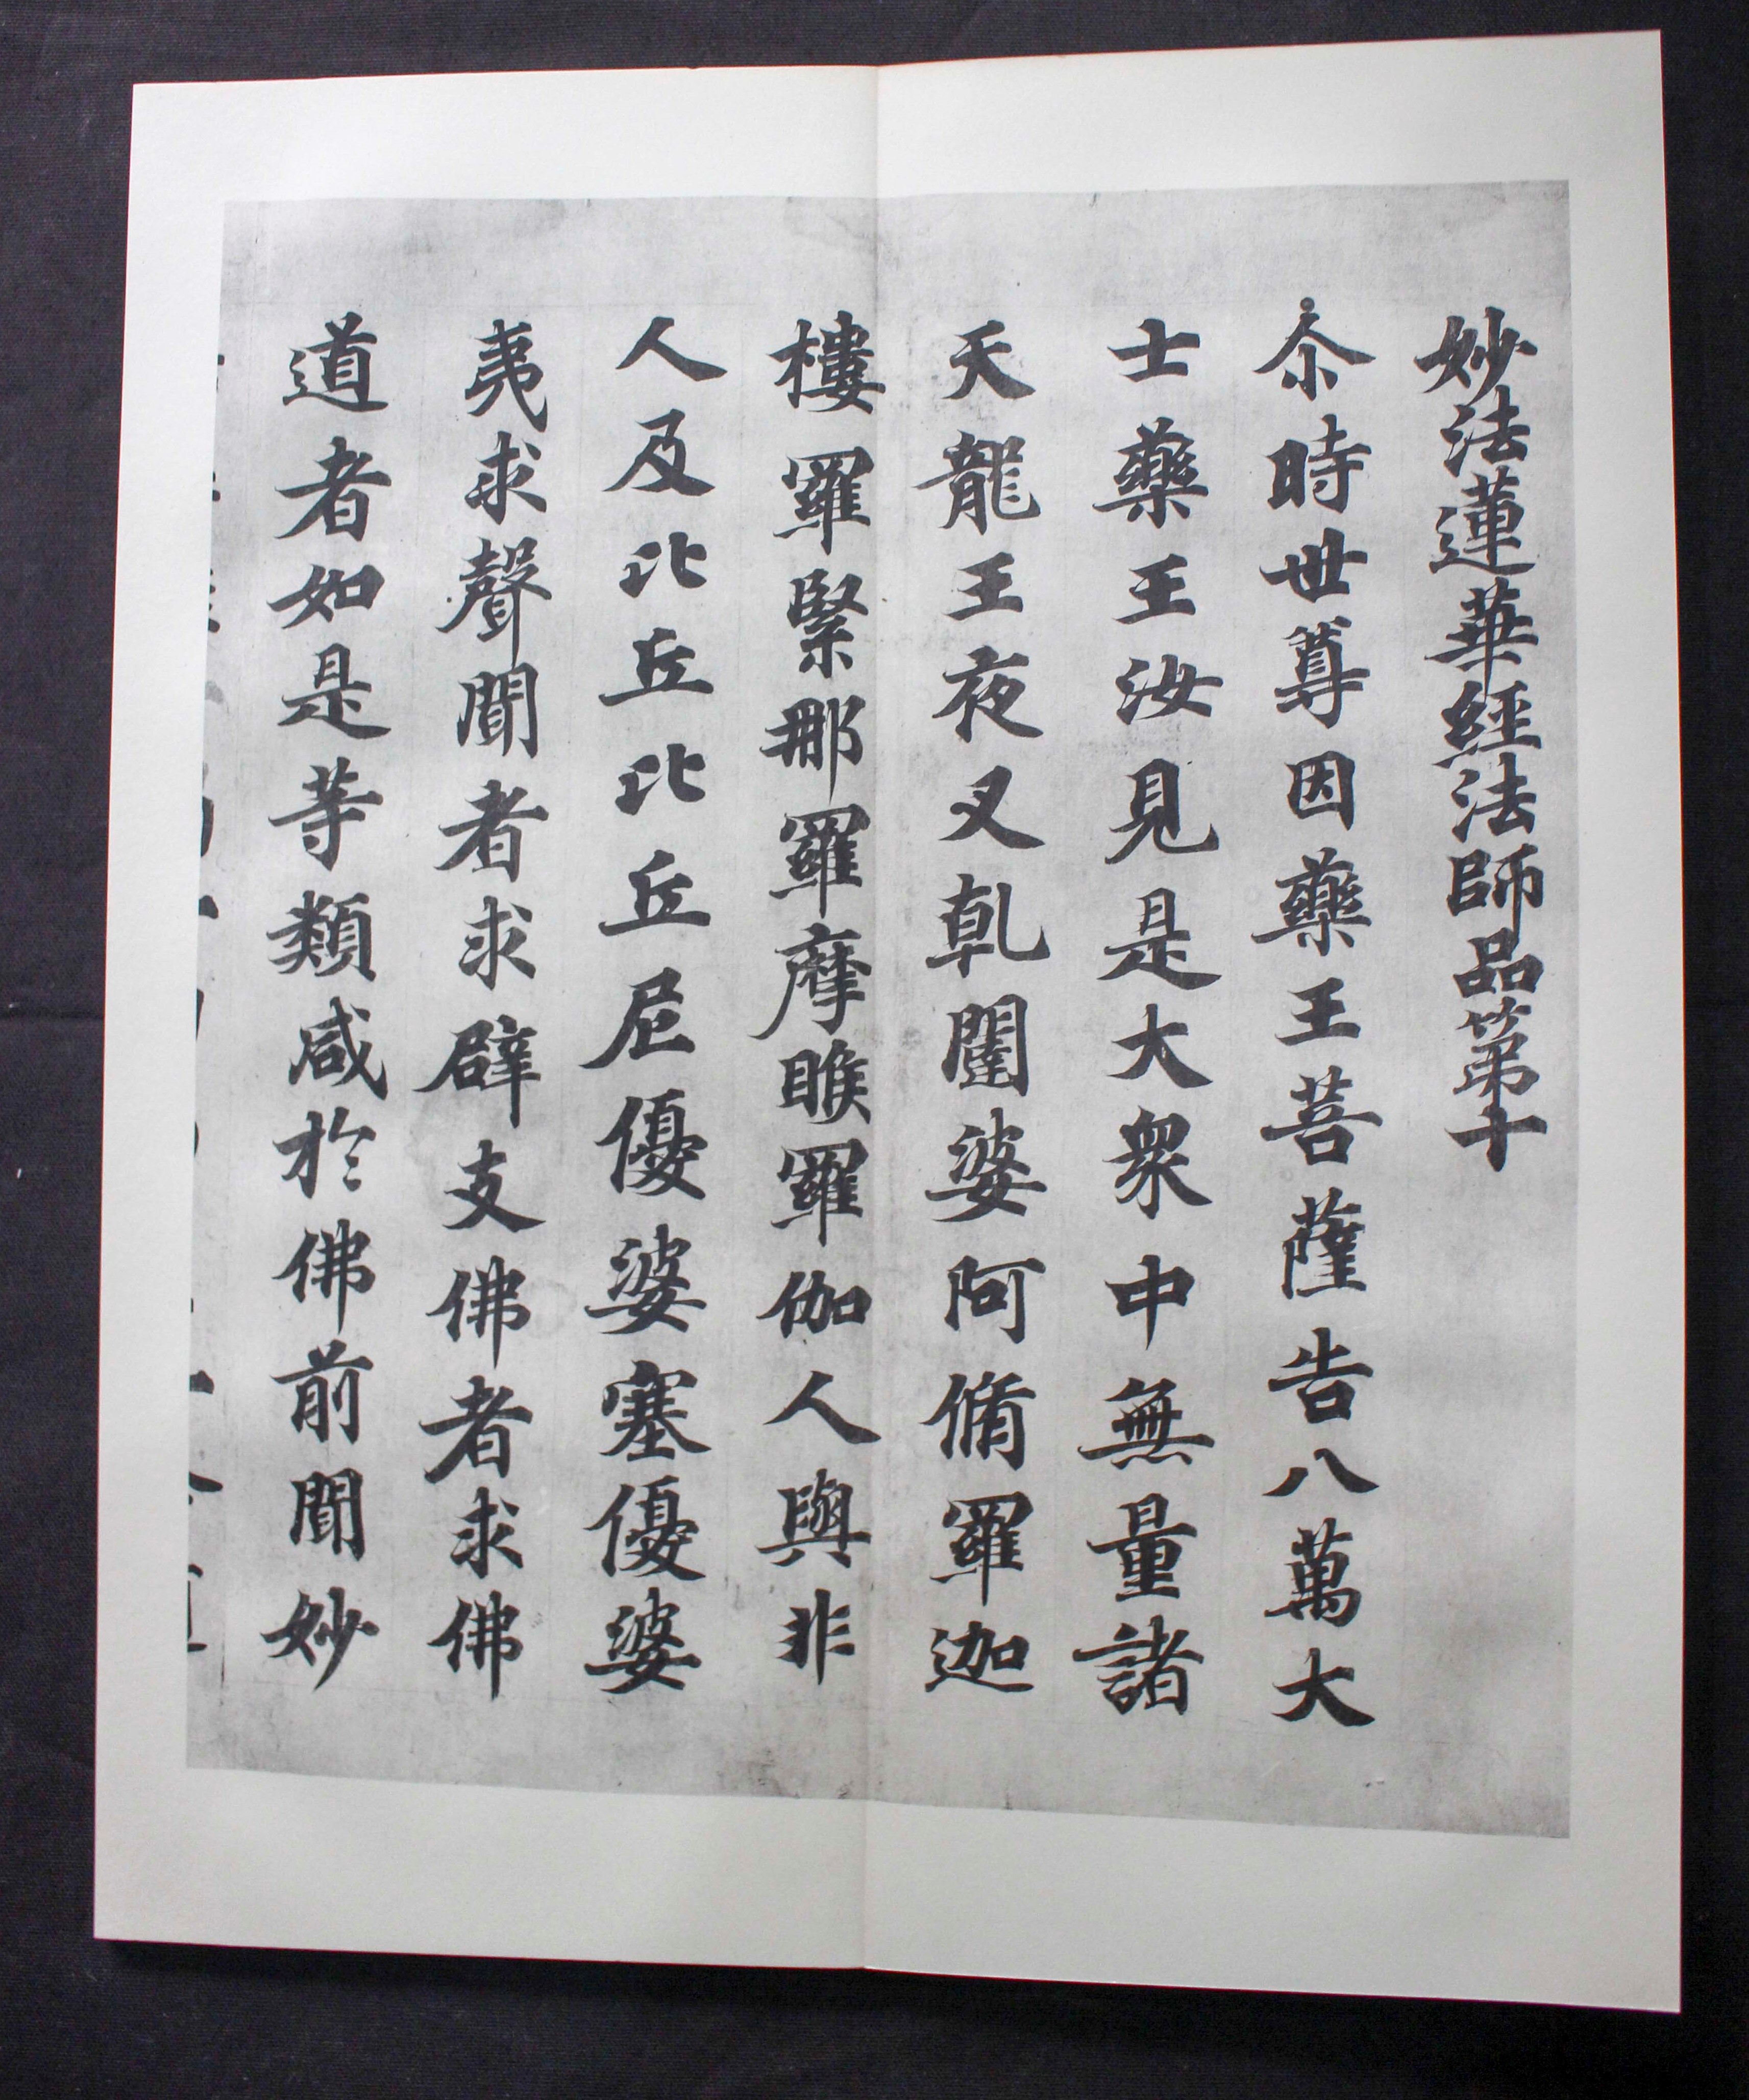 妙法蓮華經法師品第十
尒時世尊因藥王菩薩告八萬大
士藥王汝見是大衆中無量諸
天龍王夜叉乹闥婆阿脩羅迦
樓羅緊那羅摩睺羅伽人與非
人及比丘比丘尼優婆塞優婆
夷求聲聞者求辟支佛者求佛
道者如是等類咸於佛前聞妙